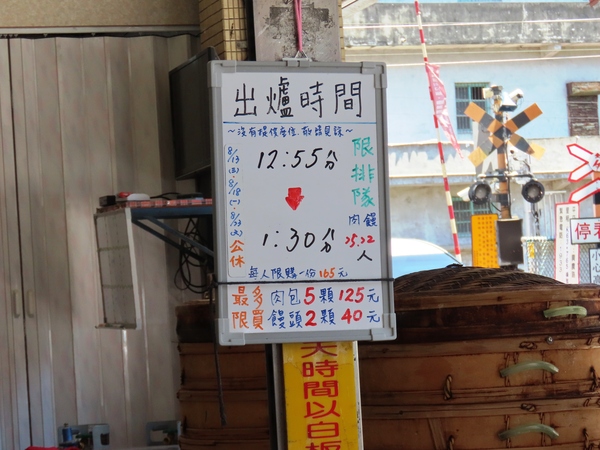 出爐時間
12:55分
1:30分
限排隊
肉 饅
25.22
人
8/13
8/18
(一)
8/23
公休
每人限購一份165元
最多 肉包5顆125元
限買 饅頭2顆40元
天時間以白板
停看
小心